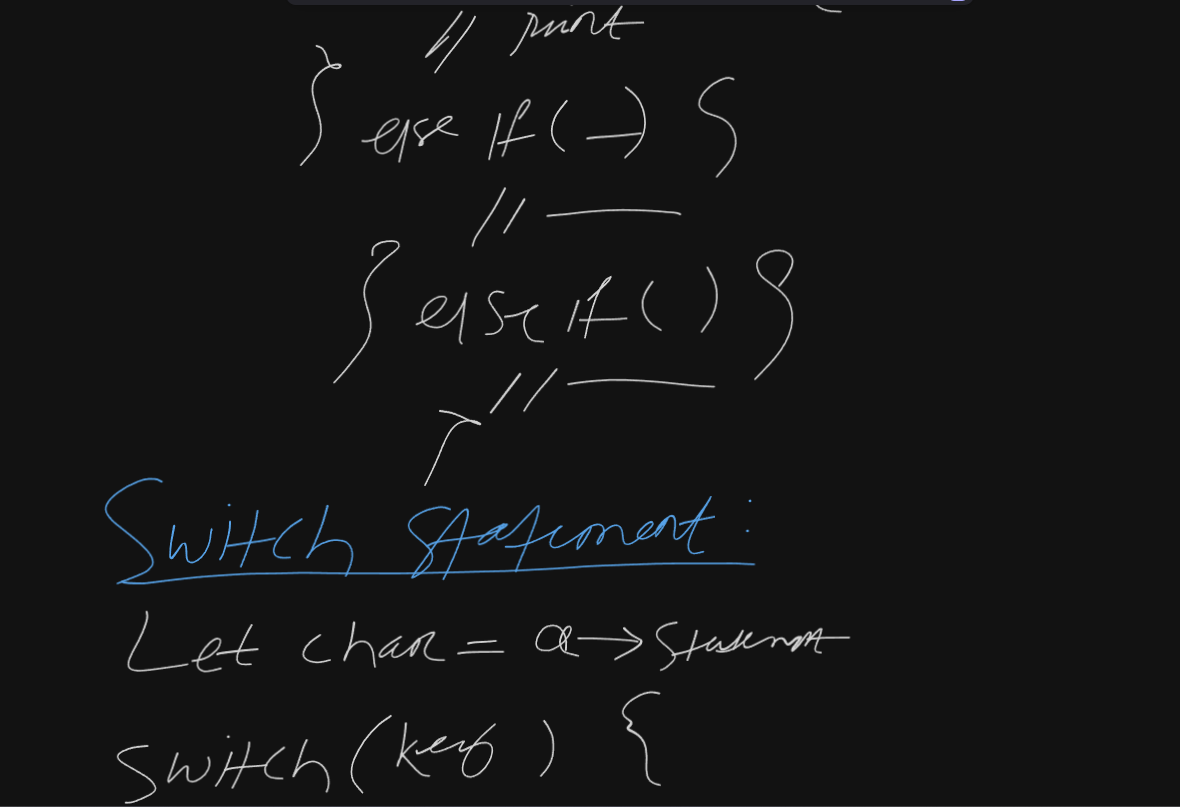 // print
} else if (—) {
// ——
} else if () {
// ——
Switch Statement:
Let char = a → Statement
Switch (key) {